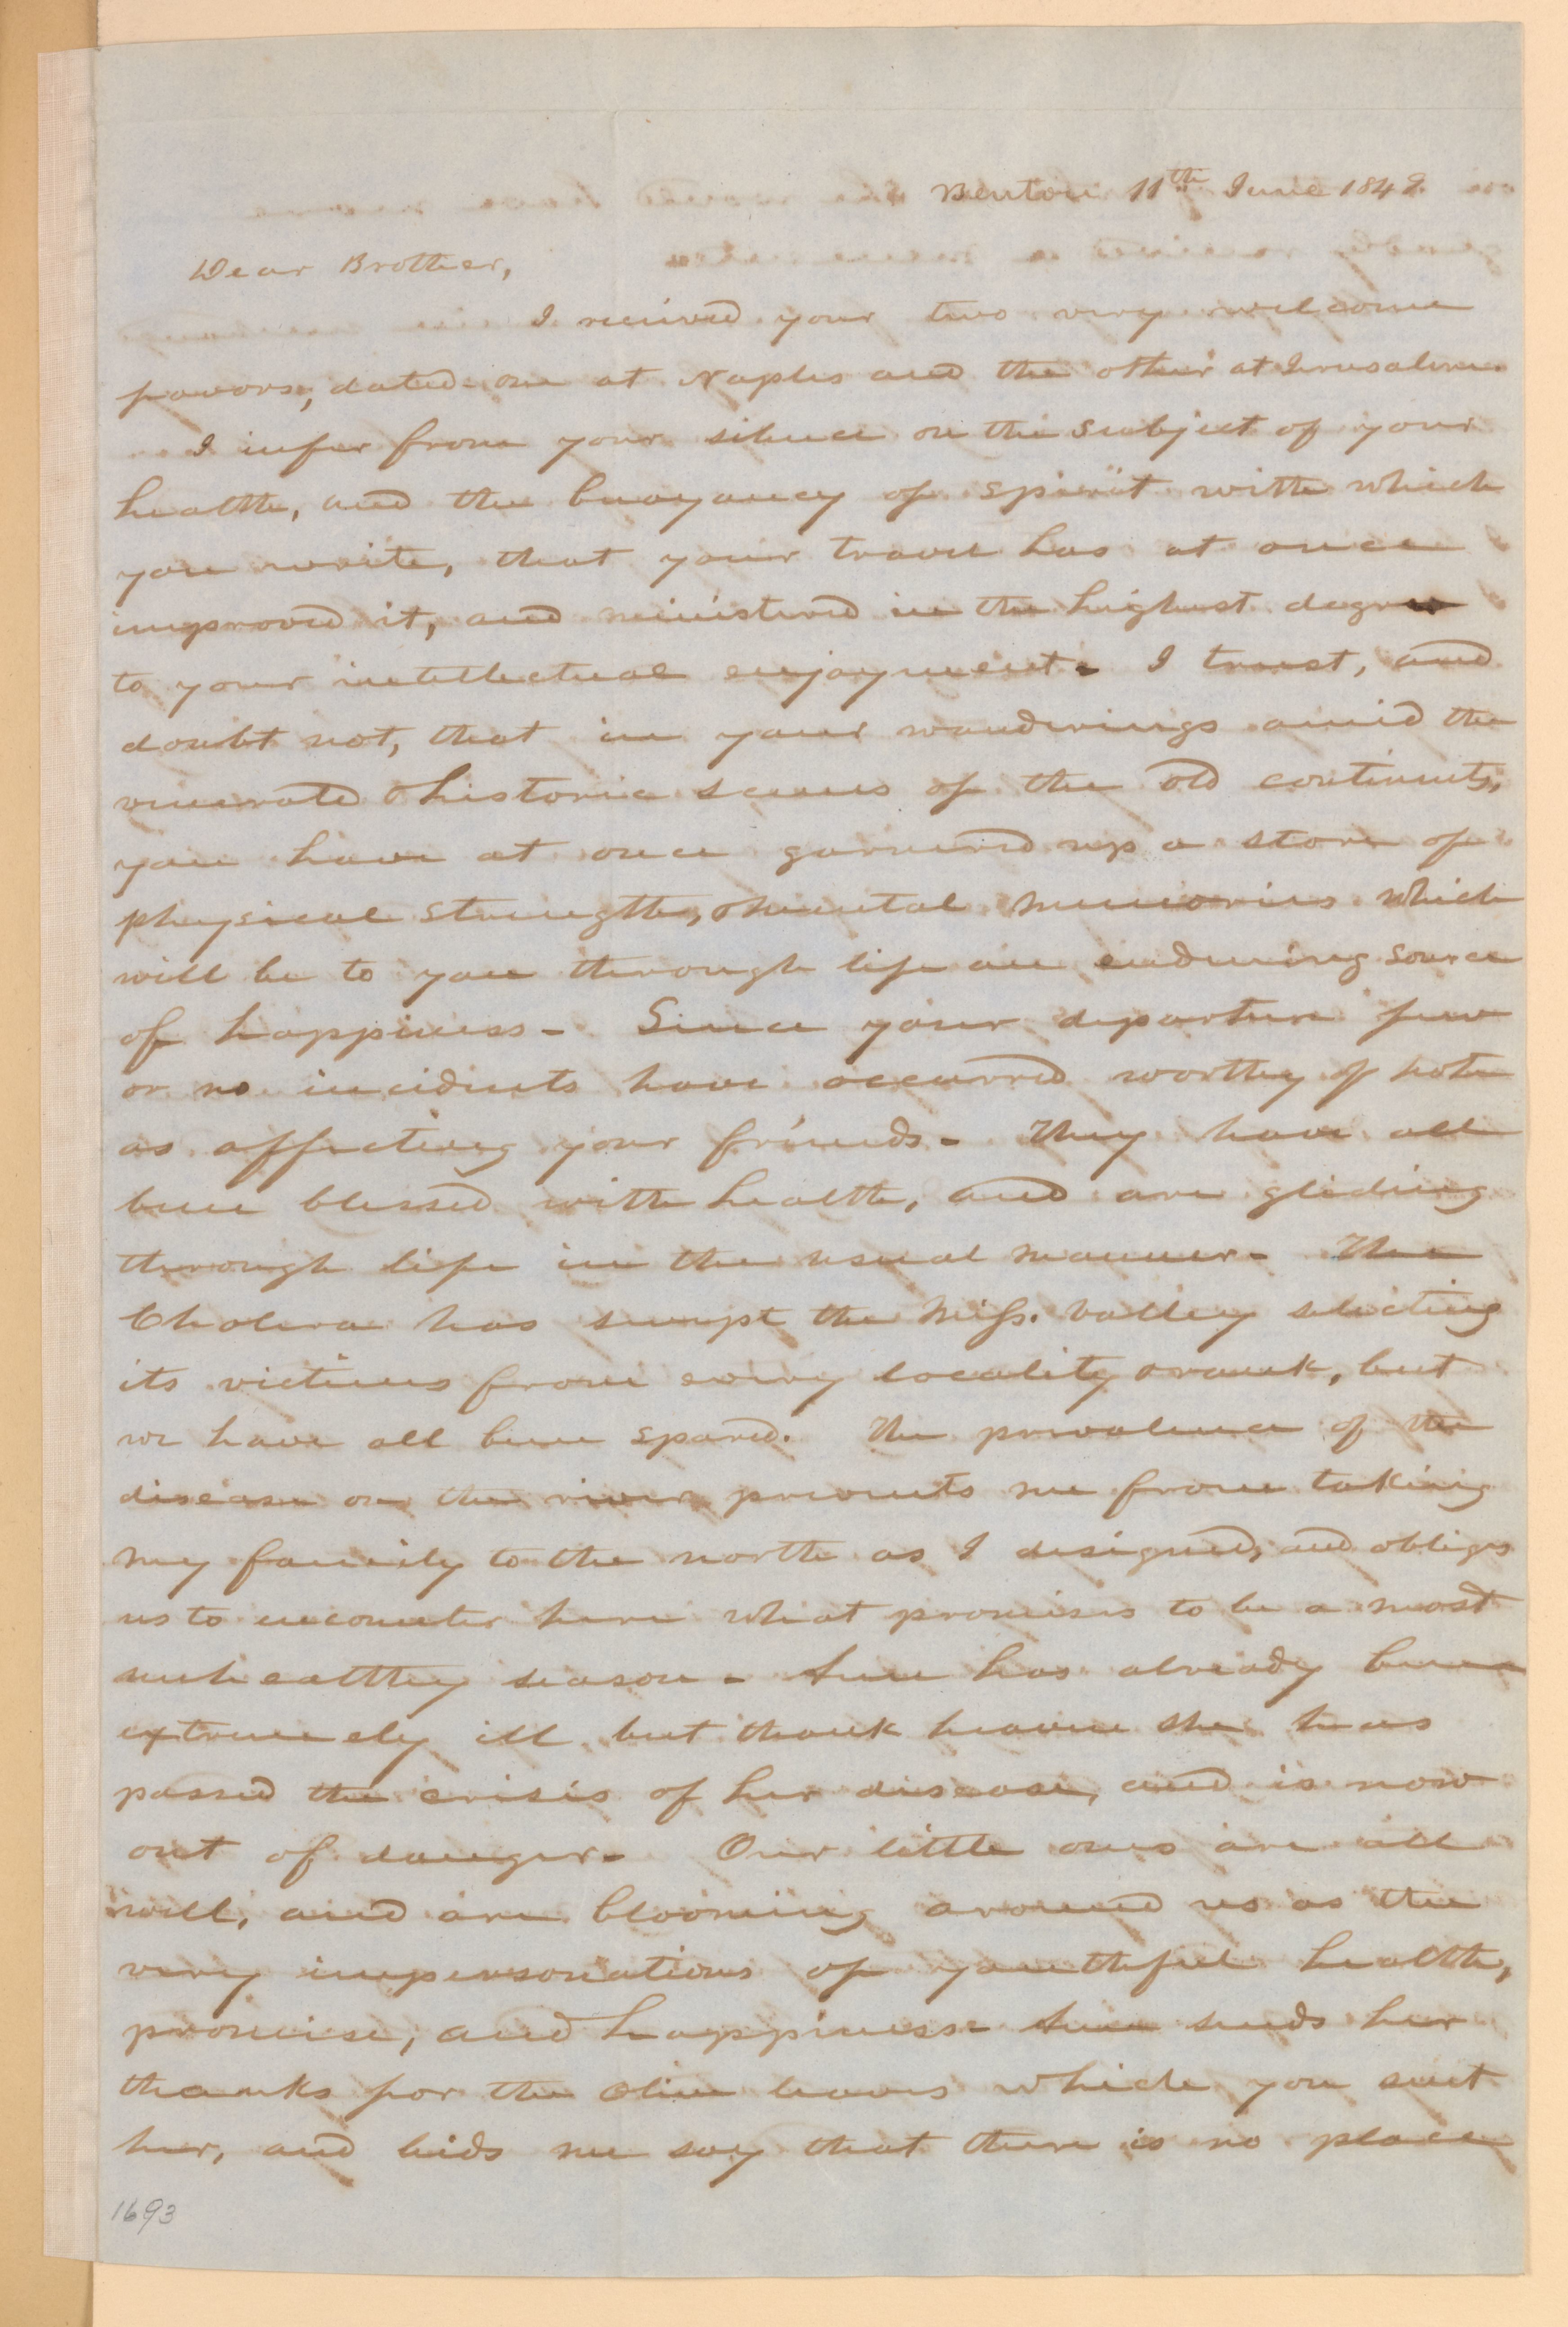 Benton 11th June 1849.
Dear Brother,
I recieved your two very welcome
favors, dated one at Naples and the other at Jerusalem.
I infer from your silence on the subject of your
health, and the buoyancy of spirit with which
you write, that your travel has at once
improved it, and ministered in the highest degree
to your intellectual enjoyment - I trust, and
doubt not, that in your wanderings amid the
venerated & historic scenes of the old continents,
you have at once garnered up a store of
physical strength, & mental memories which
will be to you through life an enduring source
of happiness - Since your departure few
or no incidents have occurred worthy of note
as affecting your friends - They have all
been blessed with health, and are gliding
through life in the usual manner - The
Cholera has swept the Miss. valley selecting
its victims from every locality & rank, but
we have all been spared. The prevalence of the
disease on the river prevents me from taking
my family to the north as I designed, and obliges
us to encounter here what promises to be a most
unhealthy season - Ann has already been
extremely ill but thank heaven she has
passed the crisis of her disease, and is now
out of danger - Our little ones are all
well, and are blooming around us as the
very impersonations of youthful health,
promise, and happiness - Ann sends her
thanks for the olive leaves which you sent
her, and bids me say that there is no place
1693